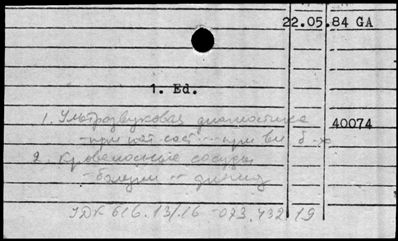 22.05.84 GA
1. Ed.
1. Ультразвуковая диагностика
- при пат. сост. - при
40074
2. Кровеносные сосуды
- болезни -- диагн
УДК 616.13/.16-073.432 19